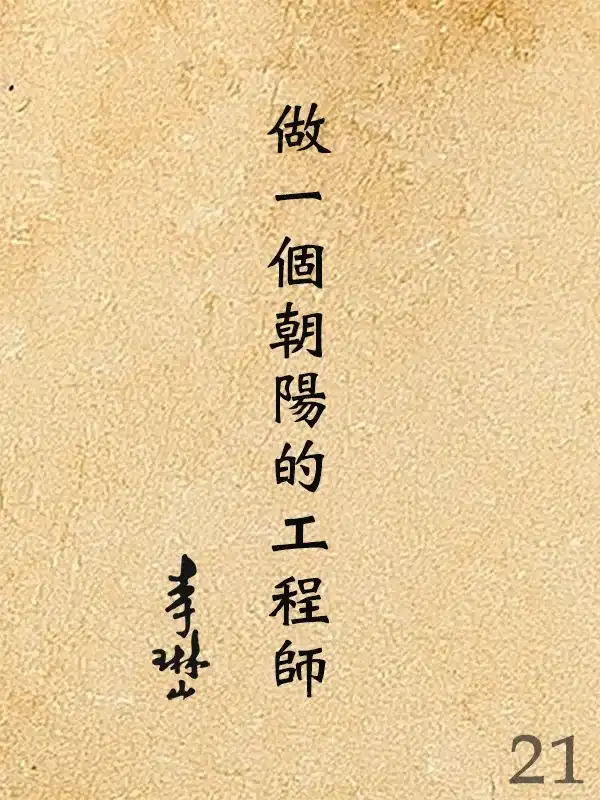 做一個朝陽的工程師
李琳山
21